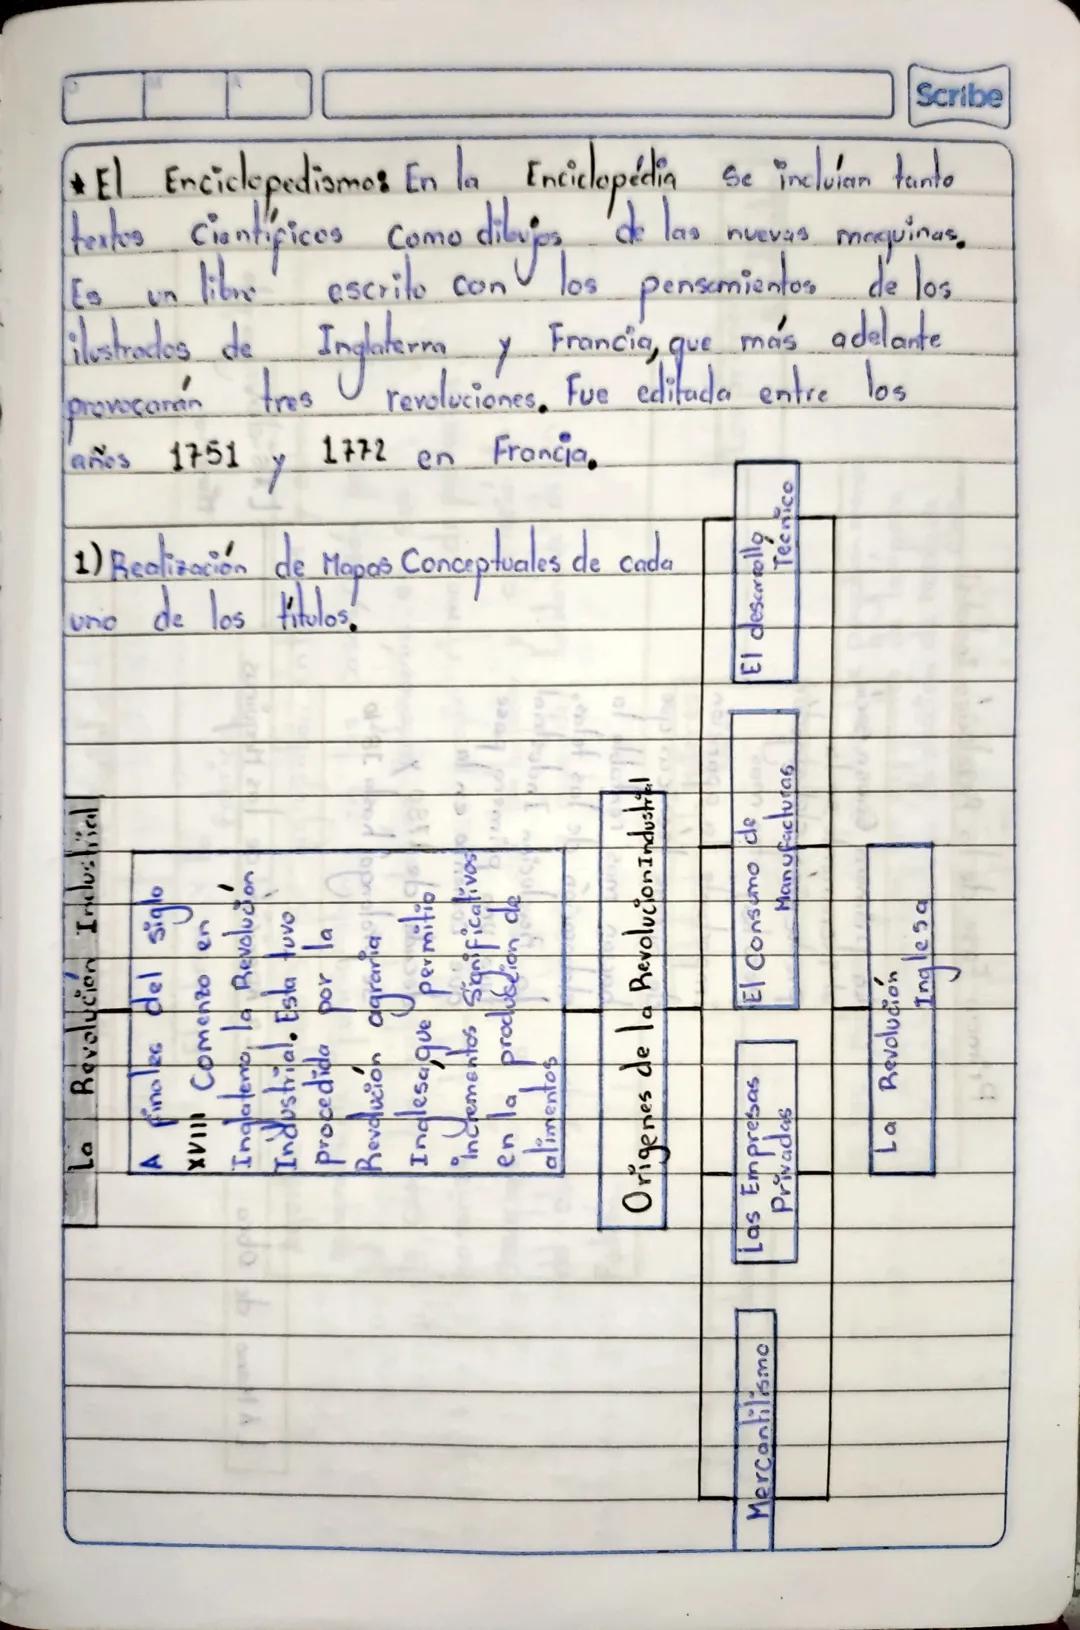 Scribe
* El Enciclopedismo: En la Enciclopédia se incluían tanto
textos Científicos como dibujos de las nuevas maquinas.
Es un libro escrito con los pensamientos de los
ilustrados de Inglaterra y Francia, que más adelante
provocarán tres revoluciones. Fue editada entre los
años 1751 y 1772 en Francia.
1) Realización de Mapas Conceptuales de cada
uno de los títulos.
La Revolución Industrial
A finales del siglo
XVIII Comenzo en
Inglaterra, la Revolución
Industrial. Esta tuvo
procedida por la
Revolución agraria
Inglesa, que permitio
incrementos Significativos
en la producción de
alimentos
Orígenes de la Revolucion Industrial
Mercantilismo
Las Empresas
Privadas
El Consumo de
Manufacturas
El desarrollo
Técnico
La Revolución
Inglesa